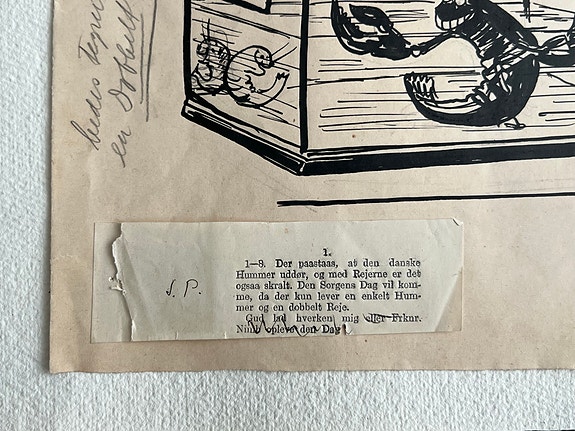 bedes
en Dobbelt
S. P.
1.
1—8. Der paastaas, at den danske
Hummer uddør, og med Rejerne er det
ogsaa skralt. Den Sorgens Dag vil kom-
me, da der kun lever en enkelt Hum-
mer og en dobbelt Reje.
Gud lad hverken mig eller Frknr.
opleve den Dag!